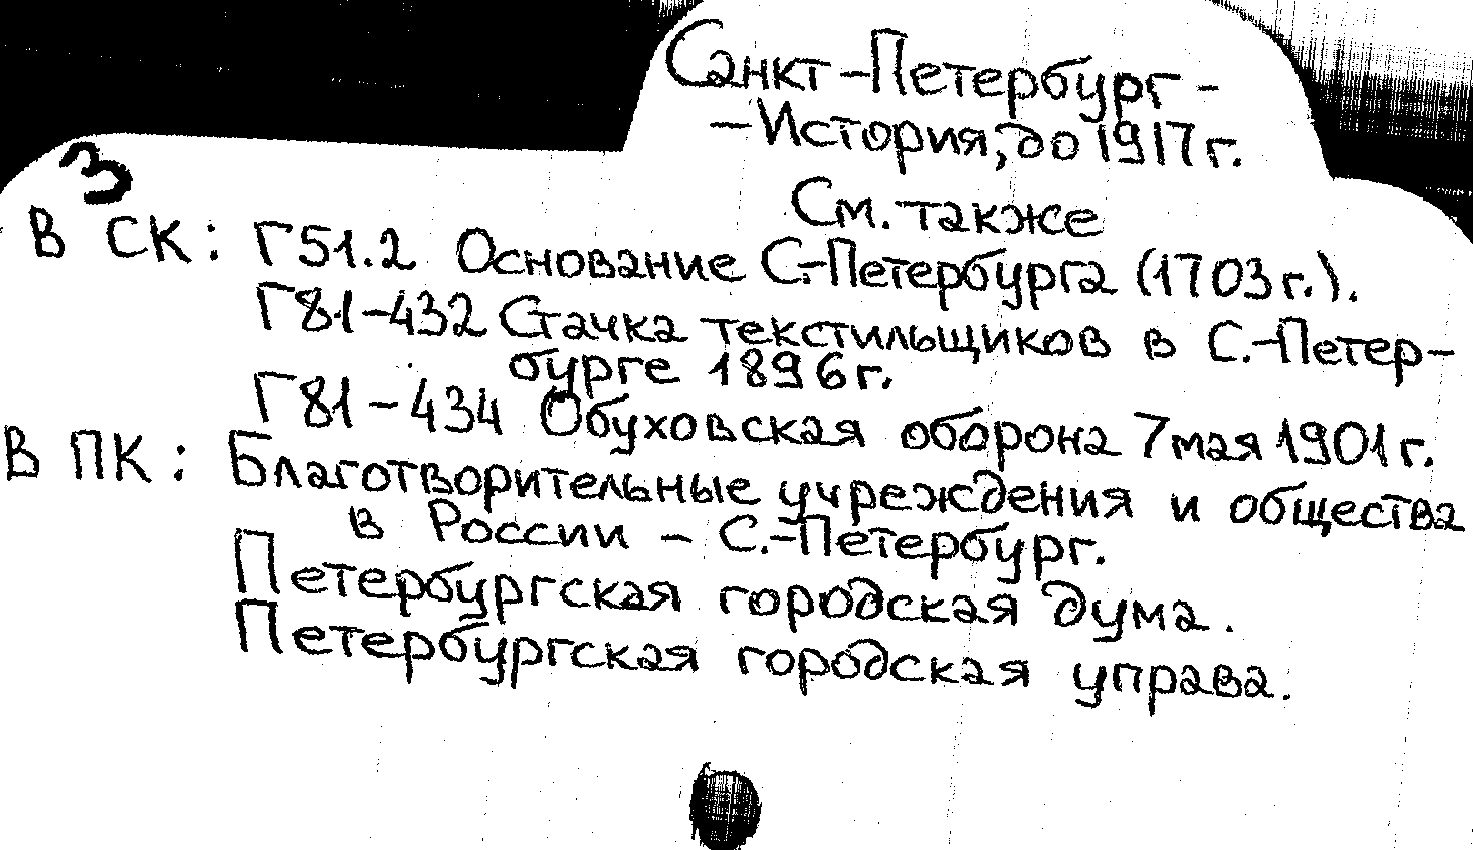 Санкт-Петербург -
- История, до 1917 г.
3
См. также
В СК: Г51.2 Основание С.-Петербурга (1703 г.).
Г81-432 Стачка текстильщиков в С.-Петер-
бурге 1896 г.
Г81-434 Обуховская оборона 7 мая 1901 г.
В ПК: Благотворительные учреждения и общества
в России - С.-Петербург.
Петербургская городская дума.
Петербургская городская управа.